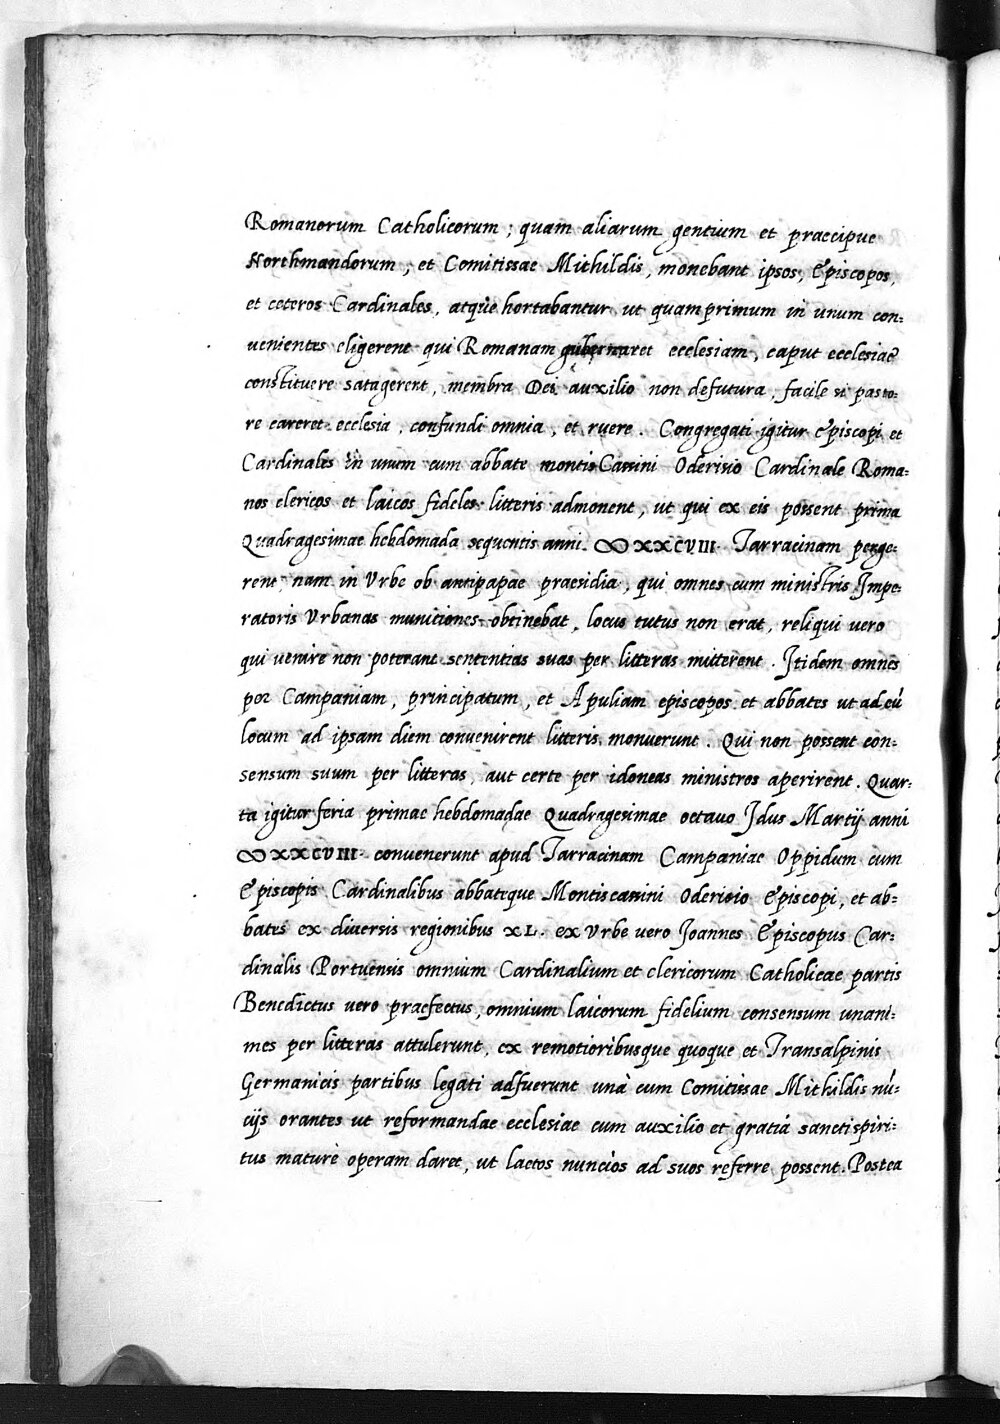 Romanorum Catholicorum ; quam aliarum gentium et praecipue
Northmandorum , et Comitissae Mithildis, monebant ipsos, Episcopos,
et ceteros Cardinales, atque hortabantur ut quamprimum in unum con=
uenientes eligerent qui Romanam gubernaret ecclesiam, caput ecclesiae
constituere satagerent, membra Dei auxilio non defutura, facile si pasto=
re careret ecclesia, confundi omnia, et ruere. Congregati igitur Episcopi et
Cardinales in unum cum abbate montis Cassini Oderisio Cardinale Roma=
nos clericos et laicos fideles litteris admonent, ut qui ex eis possent prima
Quadragesimae hebdomada sequentis anni ꝏXXCVIII. Tarracinam perge=
rent, nam in Vrbe ob antipapae praesidia, qui omnes cum ministris Impe=
ratoris Vrbanas municiones obtinebat, locus tutus non erat, reliqui vero
qui venire non poterant sententias suas per litteras mitterent. Itidem omnes
per Campaniam, principatum, et Apuliam episcopos et abbates ut ad eū
locum ad ipsam diem convenirent litteris monuerunt. Qui non possent con=
sensum suum per litteras, aut certe per idoneos ministros aperirent. Quar=
ta igitur feria primae hebdomadae Quadragesimae octavo Idus Martij anni
ꝏXXCVIII. convenerunt apud Tarracinam Campaniae Oppidum cum
Episcopis Cardinalibus abbateque Montiscassini Oderisio Episcopi, et ab=
bates ex diversis regionibus XL. ex Vrbe vero Joannes Episcopus Car=
dinalis Portuensis omnium Cardinalium et clericorum Catholicae partis
Benedictus vero praefectus, omnium laicorum fidelium consensum unani=
mes per litteras attulerunt, ex remotioribusque quoque et Transalpinis
Germanicis partibus legati adfuerunt unà cum Comitissae Mithildis nū=
cijs orantes ut reformandae ecclesiae cum auxilio et gratiá sanctispiri=
tus maturè operam daret, ut laetos nuncios ad suos referre possent. Postea